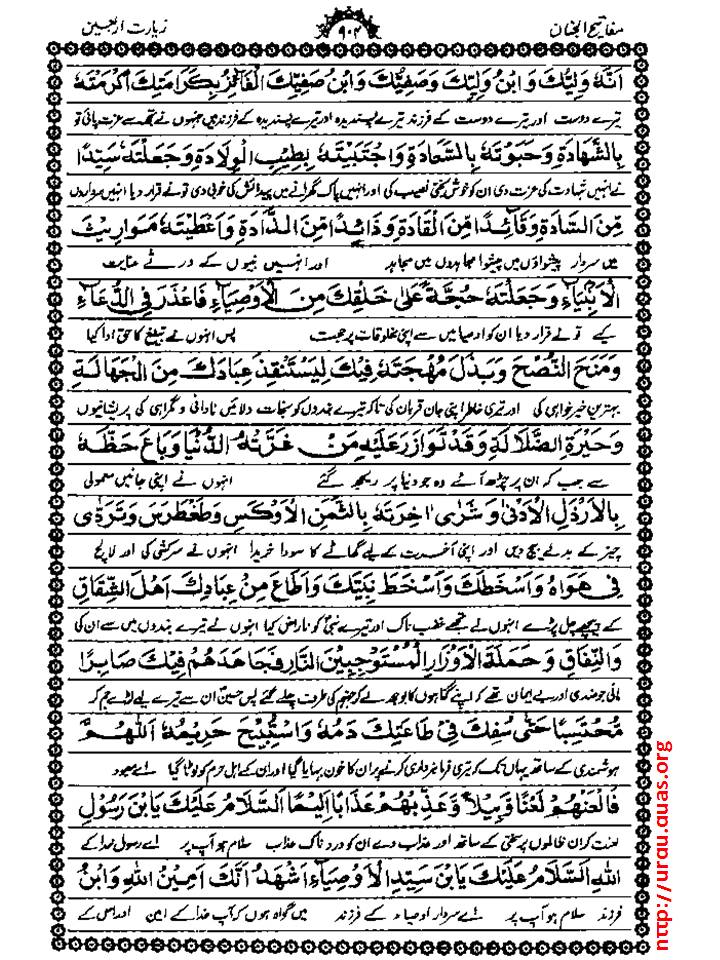 مفاتیح الجنان
۹۰۲
زیارت اربعین
اَنَّهُ وَلِيُّكَ وَابْنُ وَلِيِّكَ وَصَفِيُّكَ وَابْنُ صَفِيِّكَ الْفَائِزُ بِكَرَامَتِكَ اَكْرَمْتَهُ
تیرے دوست اور تیرے دوست کے فرزند تیرے پسندیدہ اور تیرے پسندیدہ کے فرزند ہیں جنہوں نے تجھ سے عزت پائی تو
بِالشَّهَادَةِ وَحَبَوْتَهُ بِالسَّعَادَةِ وَاجْتَبَيْتَهُ بِطِيْبِ الْوِلَادَةِ وَجَعَلْتَهُ سَيِّدًا
نے انہیں شہادت کی عزت دی ان کو خوش بختی نصیب کی اور انہیں پاک گھرانے میں پیدائش کی خوبی دی تو نے قرار دیا انہیں سرداروں
مِّنَ السَّادَةِ وَقَآئِدًا مِّنَ الْقَادَةِ وَذَائِدًا مِنَ الذَّادَةِ وَاَعْطَيْتَهُ مَوَارِيْثَ
میں سردار پیشواؤں میں پیشوا مجاہدوں میں مجاہد اور انہیں نبیوں کے ورثے عنایت
الْاَنْبِيَآءِ وَجَعَلْتَهُ حُجَّةً عَلٰى خَلْقِكَ مِنَ الْاَوْصِيَآءِ فَاَعْذَرَ فِي الدُّعَآءِ
کیے تو نے قرار دیا ان کو اوصیا میں سے اپنی مخلوقات پر حجت پس انہوں نے تبلیغ کا حق ادا کیا
وَمَنَحَ النُّصْحَ وَبَذَلَ مُهْجَتَهُ فِيْكَ لِيَسْتَنْقِذَ عِبَادَكَ مِنَ الْجَهَالَةِ
بہترین خیر خواہی کی اور تیری خاطر اپنی جان قربان کی تاکہ تیرے بندوں کو نجات دلائیں نادانی و گمراہی کی پریشانیوں
وَحَيْرَةِ الضَّلَالَةِ وَقَدْ تَوَازَرَ عَلَيْهِ مَنْ غَرَّتْهُ الدُّنْيَا وَبَاعَ حَظَّهُ
سے جب کہ ان پر چڑھ آئے وہ جو دنیا پر ریجھ گئے انہوں نے اپنی جانیں معمولی
بِالْاَرْذَلِ الْاَدْنٰى وَشَرٰى اٰخِرَتَهُ بِالثَّمَنِ الْاَوْكَسِ وَتَغَطْرَسَ وَتَرَدّٰى
چیز کے بدلے بیچ دیں اور اپنی آخرت کے لیے گھاٹے کا سودا خریدا انہوں نے سرکشی کی اور لالچ
فِيْ هَوَاهُ وَاَسْخَطَكَ وَاَسْخَطَ نَبِيَّكَ وَاَطَاعَ مِنْ عِبَادِكَ اَهْلَ الشِّقَاقِ
کے پیچھے چل پڑے انہوں نے تجھے غضب ناک اور تیرے نبیؐ کو ناراض کیا انہوں نے تیرے بندوں میں سے ان کی
وَالنِّفَاقِ وَحَمَلَةَ الْاَوْزَارِ الْمُسْتَوْجِبِيْنَ النَّارَ فَجَاهَدَهُمْ فِيْكَ صَابِرًا
مانی جو ضدی اور بے ایمان تھے کہ اپنے گناہوں کا بوجھ لے کر جہنم کی طرف چلے گئے پس حسینؑ ان سے تیرے لیے لڑے جم کر
مُّحْتَسِبًا حَتّٰى سُفِكَ فِيْ طَاعَتِكَ دَمُهُ وَاسْتُبِيْحَ حَرِيْمُهُ اَللّٰهُمَّ
ہوشمندی کے ساتھ یہاں تک کہ تیری فرمانبرداری کرنے پر ان کا خون بہایا گیا اور ان کے اہل حرم کو لوٹا گیا اے معبود
فَالْعَنْهُمْ لَعْنًا وَبِيْلًا وَعَذِّبْهُمْ عَذَابًا اَلِيْمًا اَلسَّلَامُ عَلَيْكَ يَابْنَ رَسُوْلِ
لعنت کر ان ظالموں پر سختی کے ساتھ اور عذاب دے ان کو دردناک عذاب سلام ہو آپ پر اے رسول خدا کے
اللّٰهِ اَلسَّلَامُ عَلَيْكَ يَابْنَ سَيِّدِ الْاَوْصِيَآءِ اَشْهَدُ اَنَّكَ اَمِيْنُ اللّٰهِ وَابْنُ
فرزند سلام ہو آپ پر اے سردار اوصیاء کے فرزند میں گواہ ہوں کہ آپ خدا کے امین اور اس کے
http://urdu.duas.org